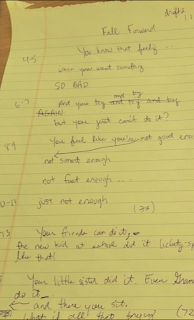 draft 2
Fall Forward
4-5 You know that feeling...
when you want something
SO BAD
6-7 And you try and try and try
but you just can't do it?
8-9 You feel like you're not good enough
not smart enough
not fast enough...
just not enough
Your friends can do it,
the new kid at school did it
like that!
Your little sister did it. Even
do it
and there you sit.
What if all that